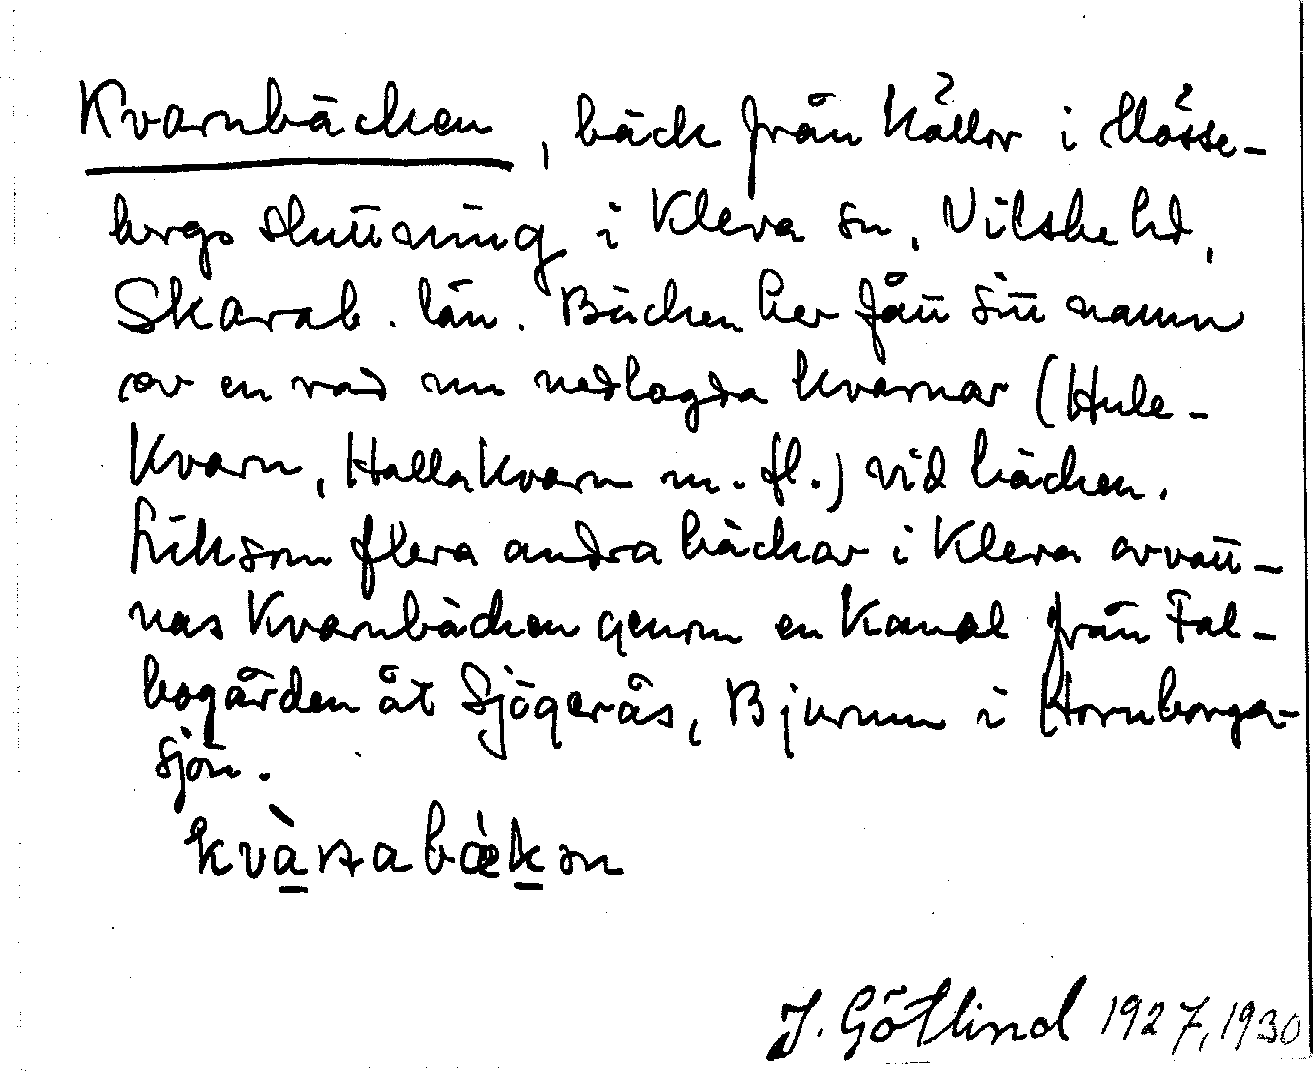 Kvarnbäcken, bäck från källor i Mösse-
bergs sluttning i Kleva sn, Vilske hd,
Skarab. län. Bäcken har fått sitt namn
av en rad nu nedlagda kvarnar (Hule-
kvarn, Hallakvarn m. fl.) vid bäcken.
Liksom flera andra bäckar i Kleva avvatt-
nas Kvarnbäcken genom en kanal från Fal-
bogården åt Sjögerås, Bjurum i Hornborga-
sjön.
kvànabǽkən
J. Götlind 1927, 1930